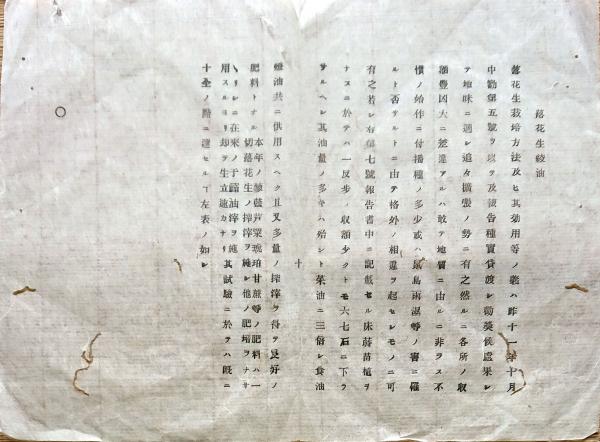 落花生綾油
落花生栽培方法及ヒ其効用等ノ義ハ昨十一年十月
中勸第五號ヲ以ヲ及報告種實貸渡シ勸奬候處果シ
テ地味ニ適シ追々擴張ノ勢ニ有之然ルニ各所ノ収
額豐凶大ニ差違アルハ敢テ地質ニ由ルニ非ラス不
慣ノ始作ニ付播種ノ多少或ハ鳥害等ノ害ニ罹
ルト否サルトニ由テ格外ノ相違ヲ起セシモノニ可
有之若シ右第七號報告書中ニ記載セル床蒔苗植ヲ
ナスニ於テハ一反歩ノ収額少クトモ六七石ニ下ラ
サルヘシ其油量ノ多キハ殆ント菜油ニ三倍シ食油
十
燈油共ニ供用スヘク且又多量ノ搾滓ヲ得ヲ良好ノ
肥料トナル
本年ノ蘆粟琥珀甘蔗等ノ肥料ハ一
切落花生ノ搾滓ヲ純シ他ノ肥培ヲナサ
、リシニ在來ノ油滓ヲ純
用スルヨリ却ヲ生立速カナリ其試驗ニ於テハ既ニ
十全ノ點ニ達セルヿ左表ノ如シ